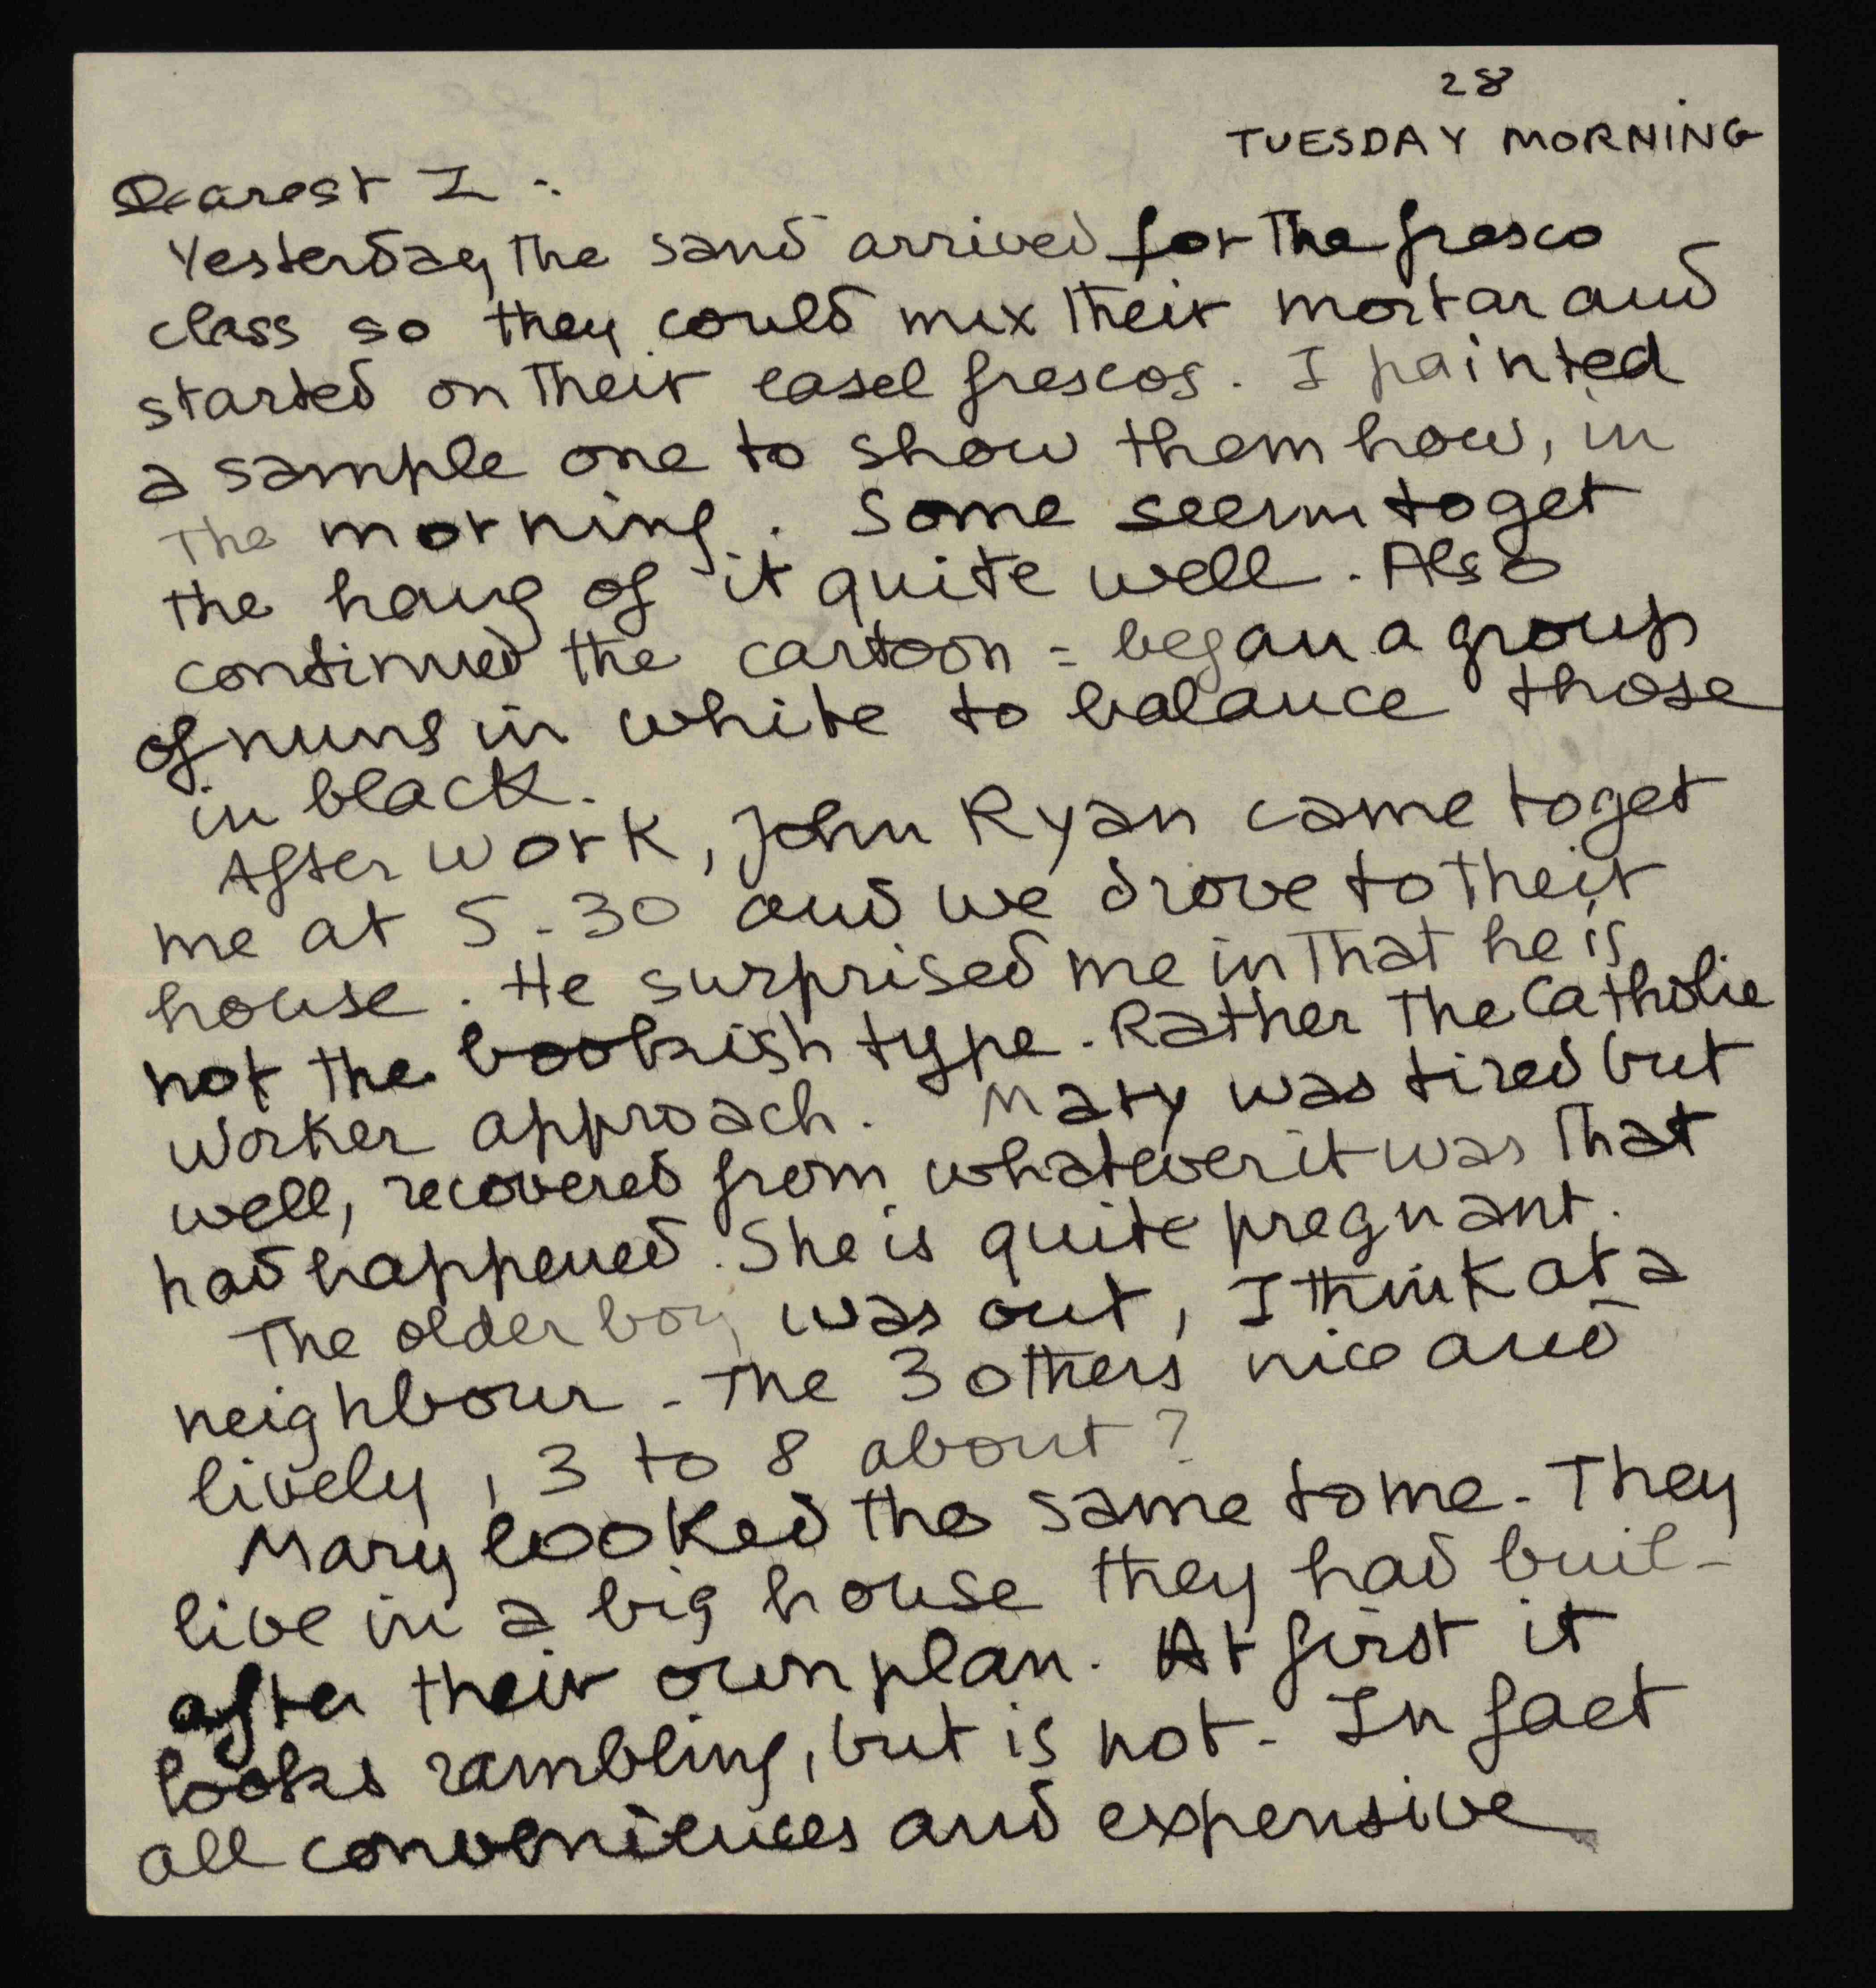 28
TUESDAY MORNING
Dearest Z :
Yesterday the sand arrived for the fresco
class so they could mix their mortar and
started on their easel frescos. I painted
a sample one to show them how, in
the morning. Some seem to get
the hang of it quite well. Also
continued the cartoon = began a group
of nuns in white to balance those
in black.
After work, John Ryan came to get
me at 5.30 and we drove to their
house. He surprised me in that he is
not the bookish type. Rather the Catholic
Worker approach. Mary was tired but
well, recovered from whatever it was that
had happened. She is quite pregnant.
The older boy was out, I think at a
neighbour - The 3 others nice and
lively, 3 to 8 about?
Mary looked the same to me. They
live in a big house they had buil-
after their own plan. At first it
looks rambling, but is not. In fact
all conveniences and expensive